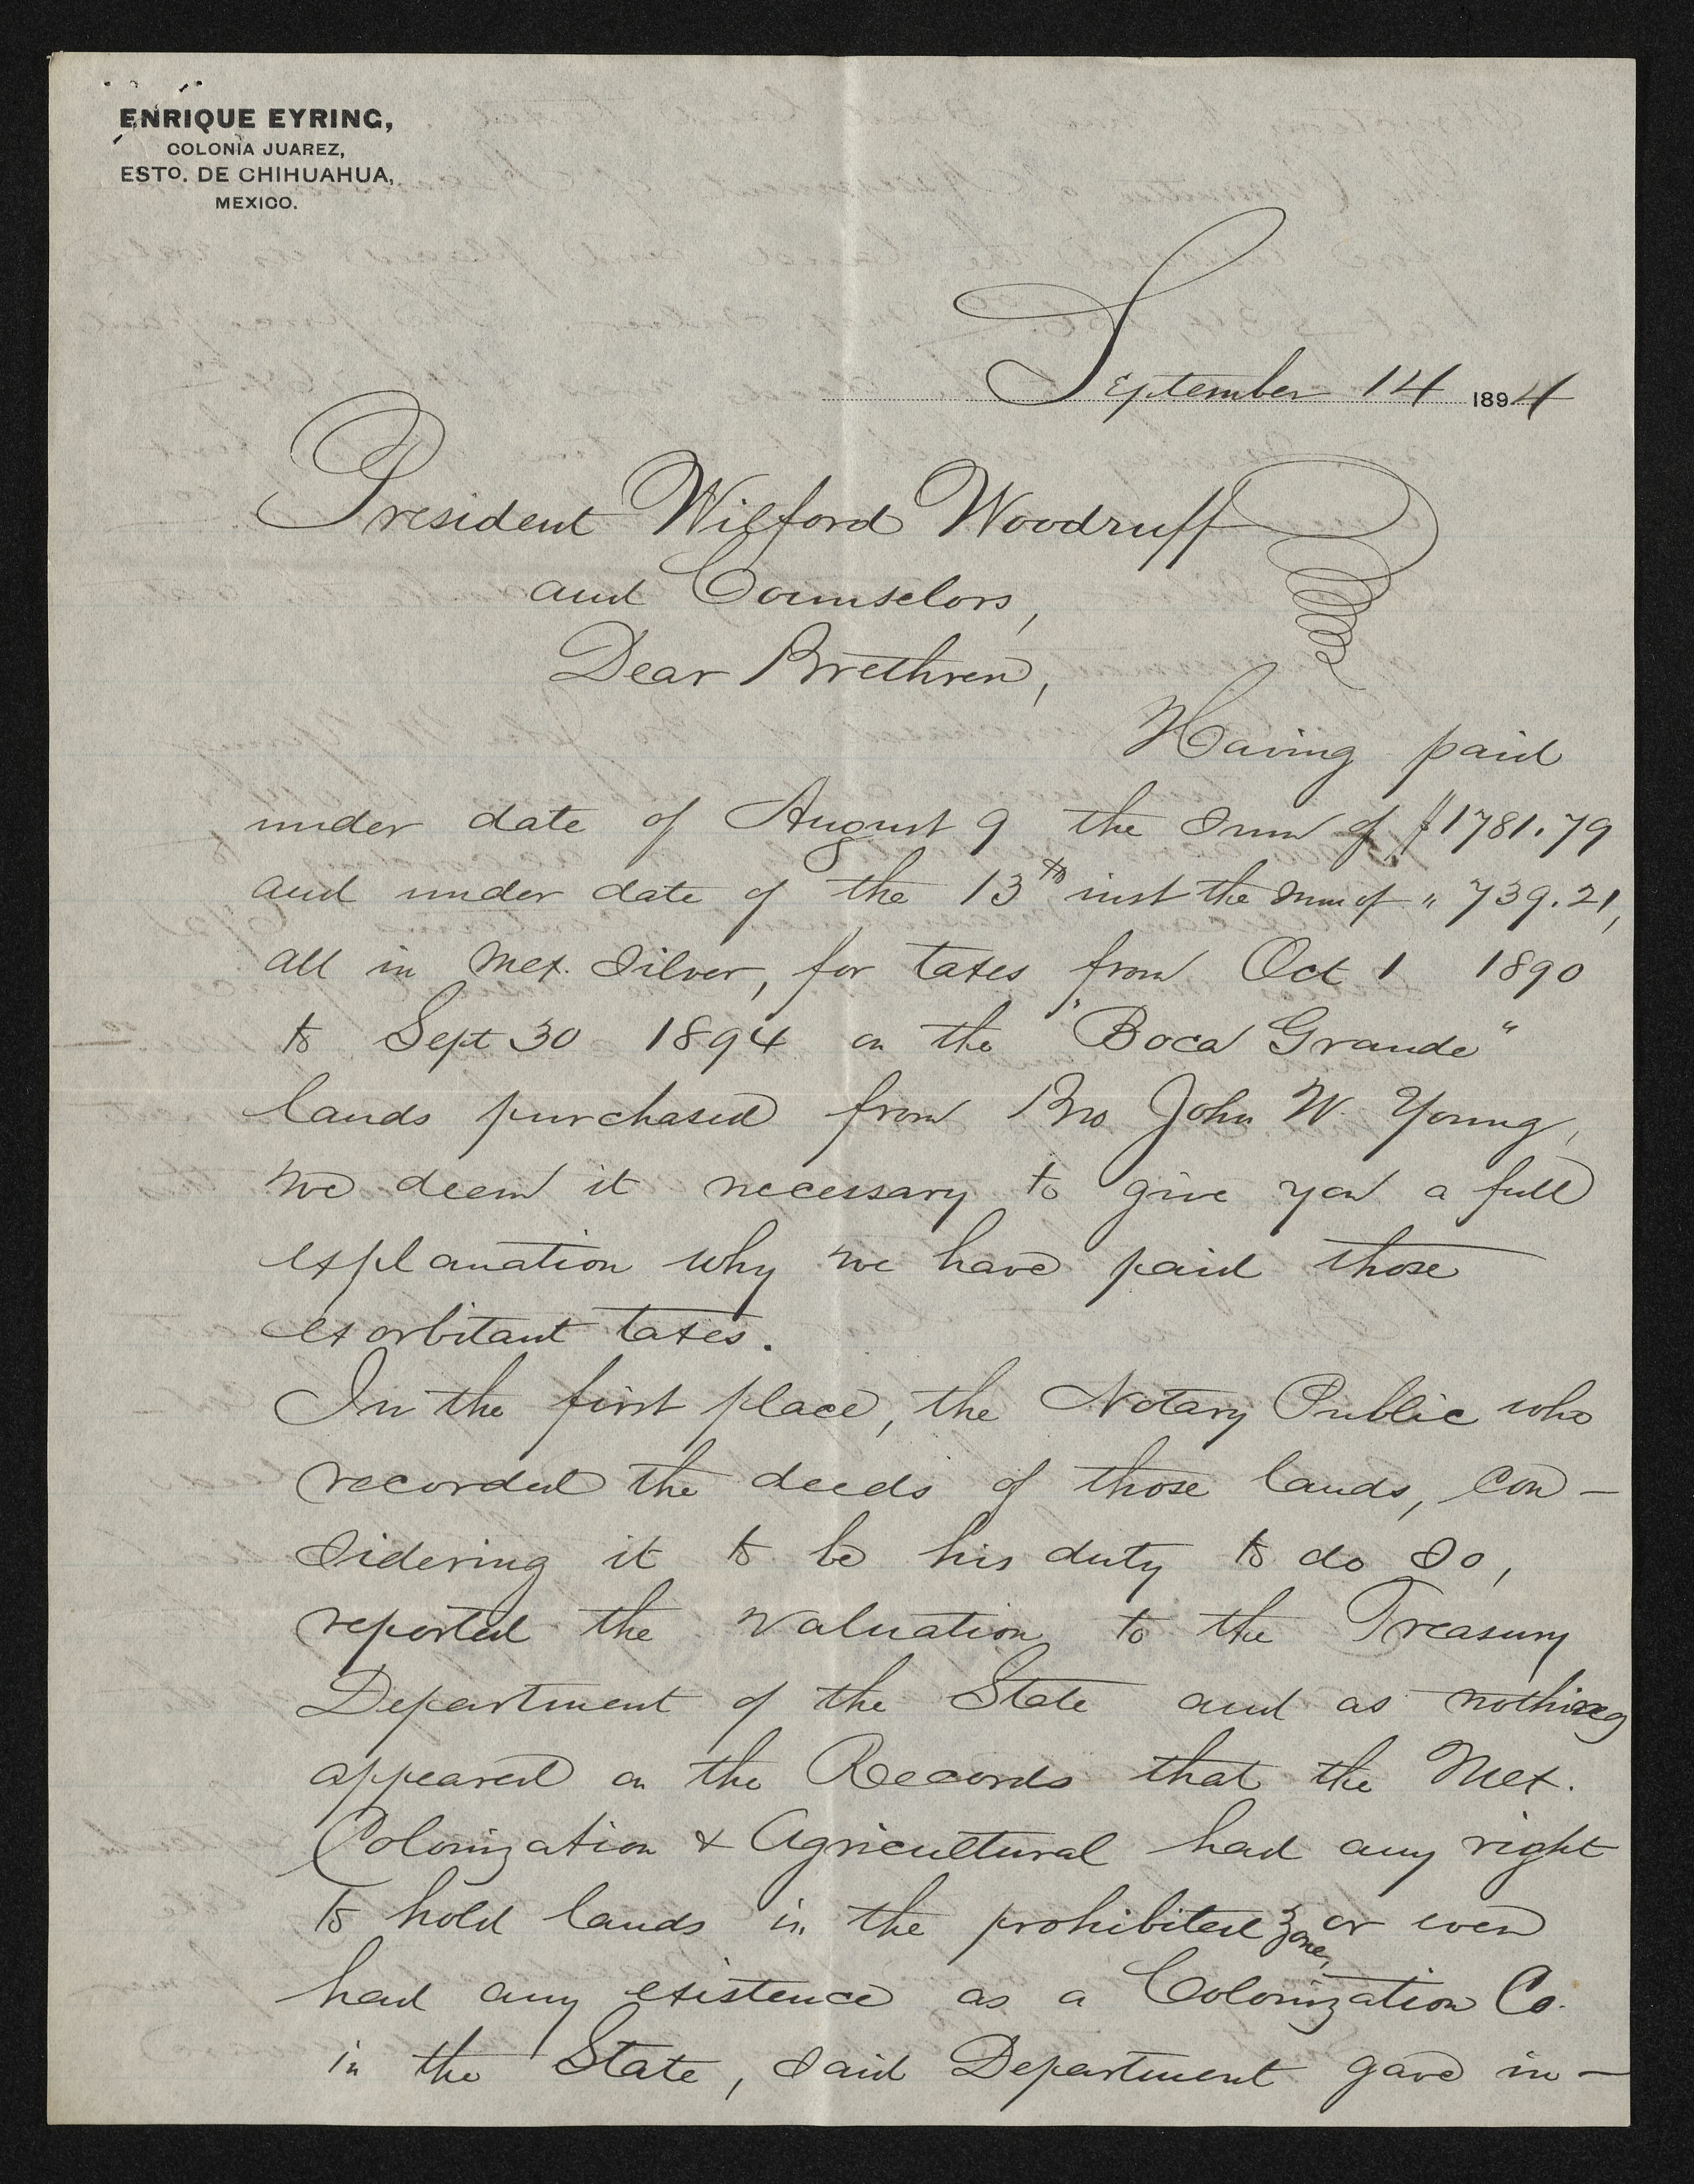 ENRIQUE EYRING,
COLONIA JUAREZ,
ESTO. DE CHIHUAHUA,
MEXICO.
September 14 1894
President Wilford Woodruff
and Counselors,
Dear Brethren,
Having paid
under date of August 9 the sum of $1781.79
and under date of the 13th inst the sum of " 739.21,
all in Mex. Silver, for taxes from Oct 1 1890
to Sept 30 1894 on the "Boca Grande"
lands purchased from Bro John W. Young,
we deem it necessary to give you a full
explanation why we have paid those
exorbitant taxes.
In the first place, the Notary Public who
recorded the deeds of those lands, con-
sidering it to be his duty to do so,
reported the valuation to the Treasury
Department of the State and as nothing
appeared on the Records that the Mex.
Colonization & Agricultural had any right
to hold lands in the prohibited zone, or even
had any existence as a Colonization Co.
in the State, said Department gave in-